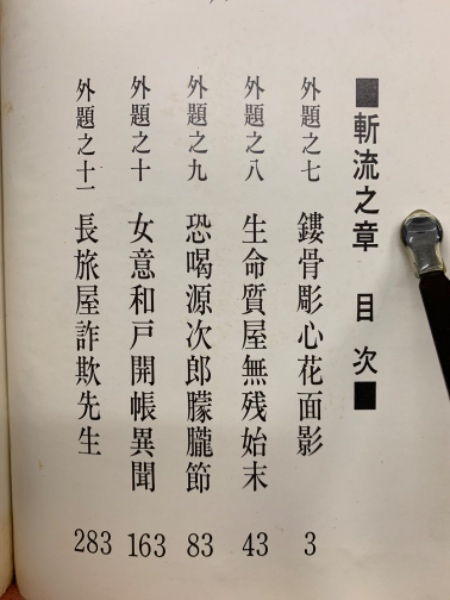 ■斬流之章 目次■
外題之七 鏤骨彫心花面影 3
外題之八 生命質屋無残始末 43
外題之九 恐喝源次郎朦朧節 83
外題之十 女意和戸開帳異聞 163
外題之十一 長旅屋詐欺先生 283